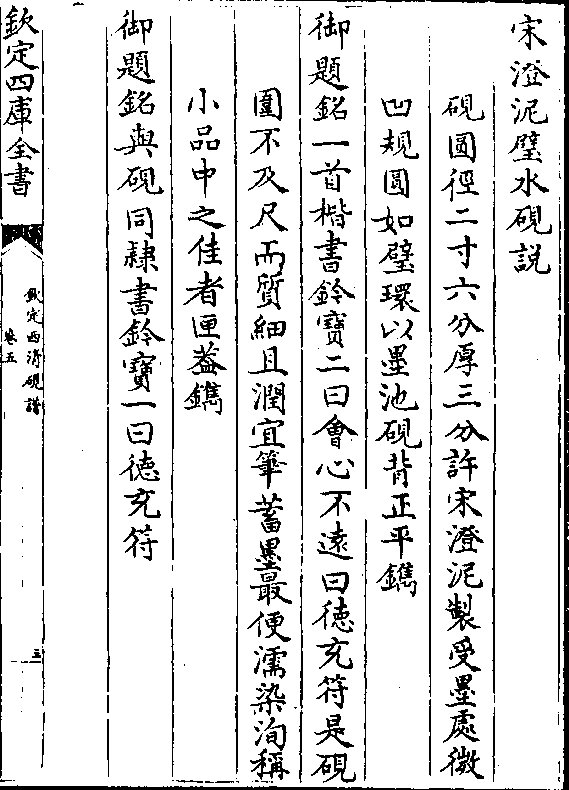 宋澄泥璧水硯說
硯圓徑二寸六分厚三分許宋澄泥製受墨處微
凹規圓如璧環以墨池硯背正平鐫
御題銘一首楷書鈐寶二曰會心不遠曰德充符是硯
圍不及尺而質細且潤宜筆蓄墨最便濡染洵稱
小品中之佳者匣葢鐫
御題銘與硯同隸書鈐寶一曰德充符
欽定四庫全書
欽定西清硯譜
卷五
三